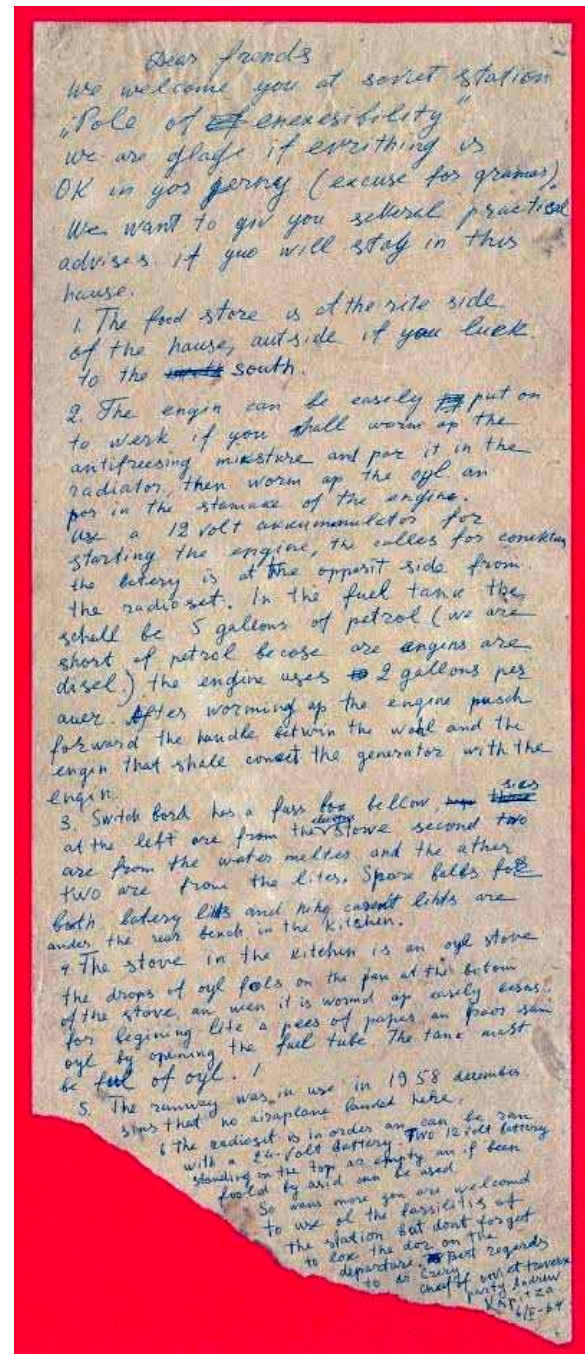 Dear frends
we welcome you at soviet station
„Pole of enexesibility"
we are glad if evrithing is
OK in yos perny (excuse for gramar)
We want to giv you selleral practical
advises. if yuo will stay in this
hause.
1. The food store is at the rite side
of the hause, autside if you luck
to the south.
2. The engin can be easily put on
to werk if you shall worm ap the
antifreesing miksture and por it in the
radiator, then worm ap the oyl an
por in the stamake of the engine.
Use a 12 volt akkummulator for
starting the engine, the calles for conekting
the batery is at the opposit side from
the radioset. In the fuel tank the,
schall be 5 gallons of petrol (we are
short of petrol becose are engins are
disel.) the engine uses 2 gallons per
auer. After worming ap the engine pusch
forward the handle betwin the wall and the
engin that shale conect the generator with the
engin.
3. Switch bord has a fuss box bellow
at the left are from the stowe second two
are from the water melter and the ather
two are from the lites. Spare balbs for
both batery lits and lihts are
ander the rear bench in the kitchen.
4 The stove in the kitchen is an oyl stove
the drops of oyl fols on the pan at the botom
of the stove, an wen it is wormd ap easily berns.
for begining lite a pees of paper an poor sam
oyl by opening the fuel tube. The tank mast
be ful of oyl. !
5. The runway was in use in 1958 december
sins that no airaplane landed here,
6 The radioset is in order an can be ran
with a 24-volt battery two 12 volt battery
standing on the top ar empty an if been
foold by asid can be used
So wans more you are welcomd
to use ol the fassilitis of
the station but dont forget
to lox the dor on the
departure. Best regards
to dr Crery
cheef of soviet traverse
party Andrew
Kapitza